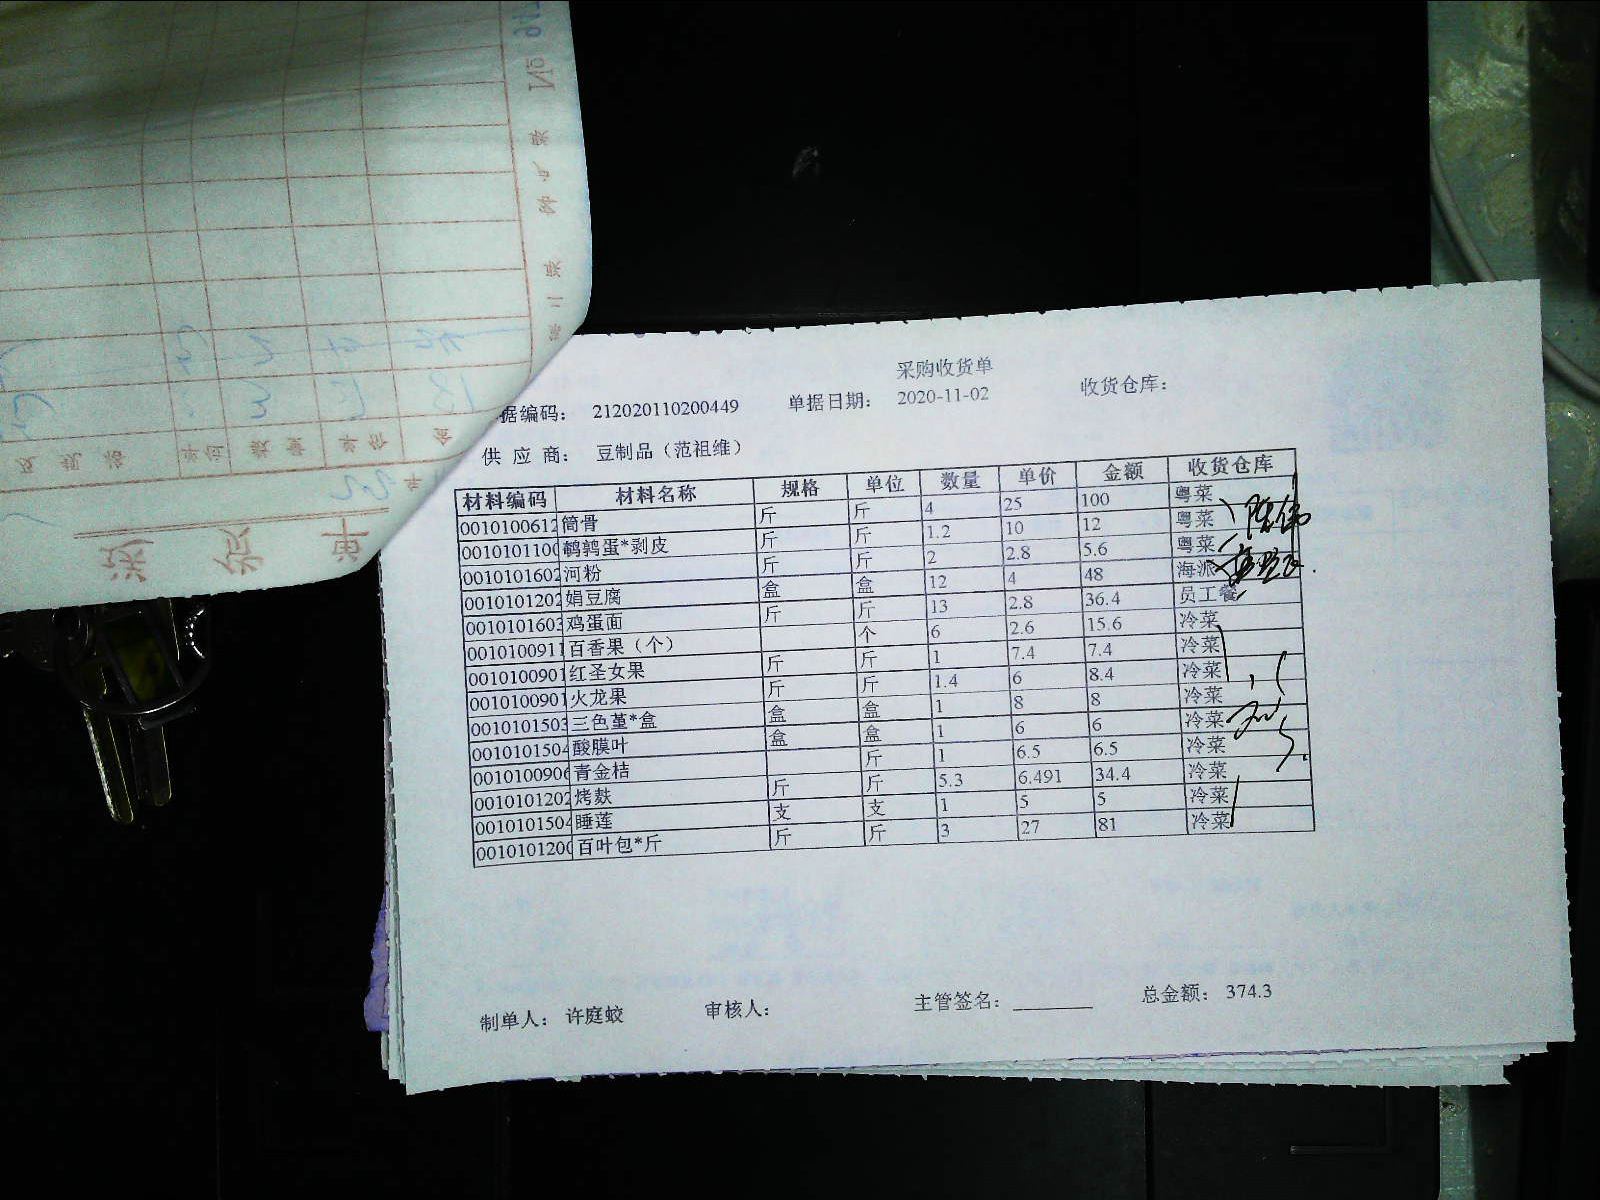 采购收货单
据编码： 212020110200449 单据日期： 2020-11-02 收货仓库：
供 应 商： 豆制品（范祖维）
材料编码 材料名称 规格 单位 数量 单价 金额 收货仓库
0010100612 筒骨 斤 斤 4 25 100 粤菜
0010101100 鹌鹑蛋*剥皮 斤 斤 1.2 10 12 粤菜
0010101602 河粉 斤 斤 2 2.8 5.6 粤菜
0010101202 娟豆腐 盒 盒 12 4 48 海派
0010101603 鸡蛋面 斤 斤 13 2.8 36.4 员工餐
0010100911 百香果（个） 个 6 2.6 15.6 冷菜
0010100901 红圣女果 斤 斤 1 7.4 7.4 冷菜
0010100901 火龙果 斤 斤 1.4 6 8.4 冷菜
0010101503 三色堇*盒 盒 盒 1 8 8 冷菜
0010101504 酸膜叶 盒 盒 1 6 6 冷菜
0010100906 青金桔 斤 1 6.5 6.5 冷菜
0010101202 烤麸 斤 斤 5.3 6.491 34.4 冷菜
0010101504 睡莲 支 支 1 5 5 冷菜
0010101200 百叶包*斤 斤 斤 3 27 81 冷菜
制单人： 许庭蛟 审核人： 主管签名： 总金额： 374.3